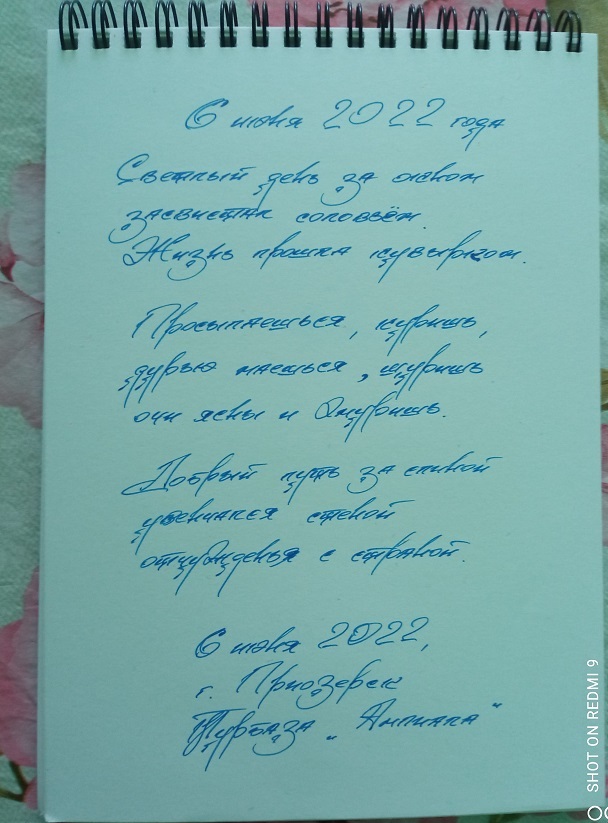 6 июня 2022 года
Светлый день за окном
засвистал соловьём.
Жизнь прошла кувырком.
Просыпаешься, куришь,
дурью маешься, щуришь
очи ясны и жмуришь.
Добрый путь за спиной
увенчался стеной
отчужденья с страной.
6 июня 2022,
г. Приозерск
Турбаза „
SHOT ON REDMI 9